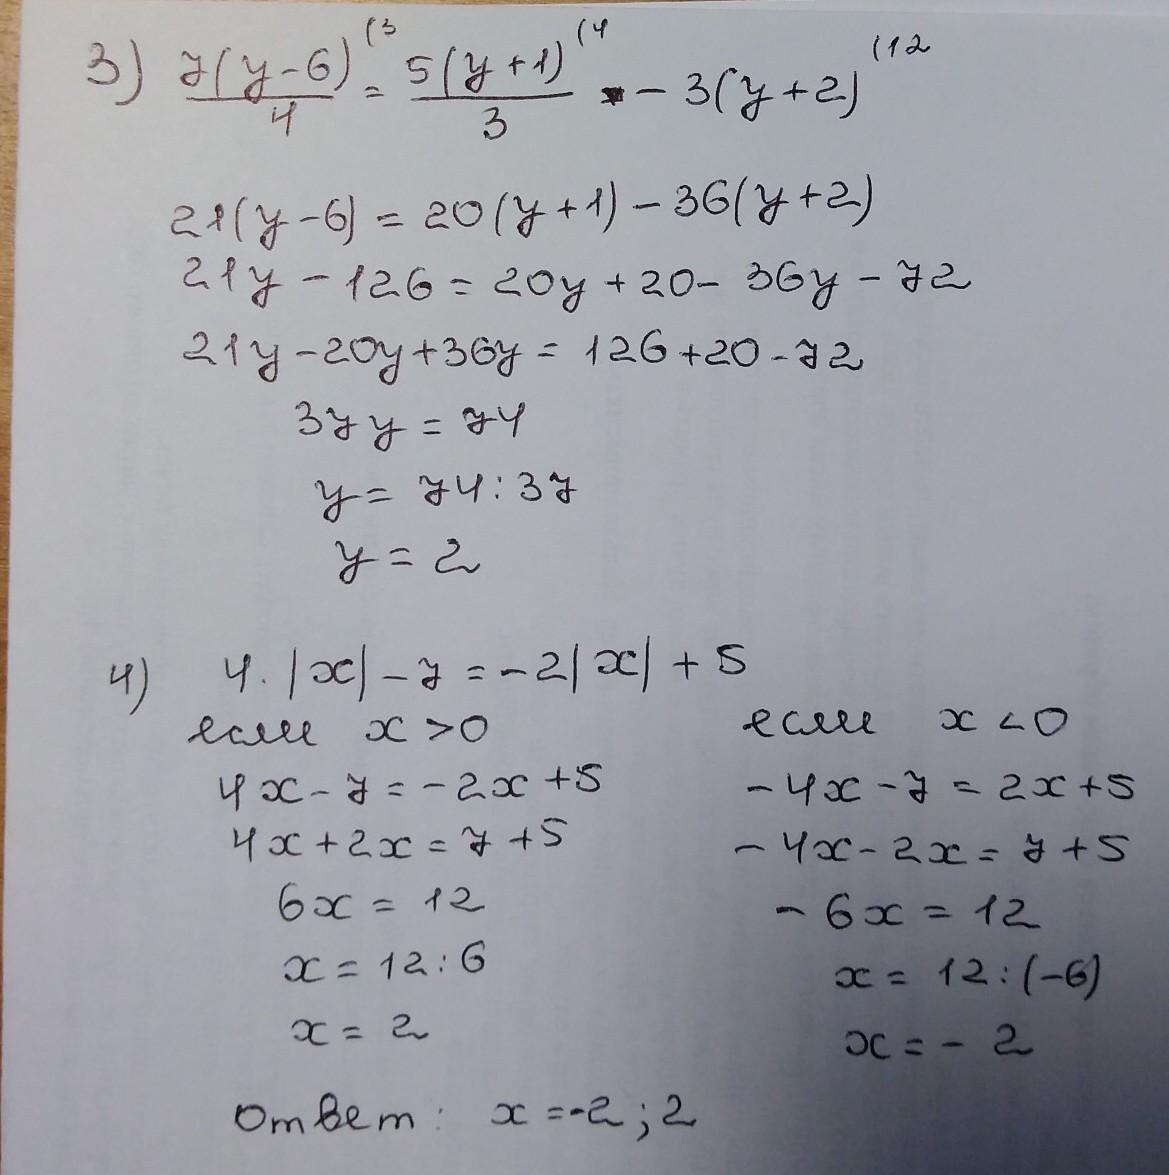 3) 7(y-6)/4 (3 = 5(y+1)/3 (4 - 3(y+2) (12
21(y-6) = 20(y+1) - 36(y+2)
21y - 126 = 20y + 20 - 36y - 72
21y - 20y + 36y = 126 + 20 - 72
37y = 74
y = 74 : 37
y = 2
4) 4. |x| - 7 = -2|x| + 5
если x > 0
4x - 7 = -2x + 5
4x + 2x = 7 + 5
6x = 12
x = 12 : 6
x = 2
если x < 0
-4x - 7 = 2x + 5
-4x - 2x = 7 + 5
-6x = 12
x = 12 : (-6)
x = -2
Ответ: x = -2 ; 2